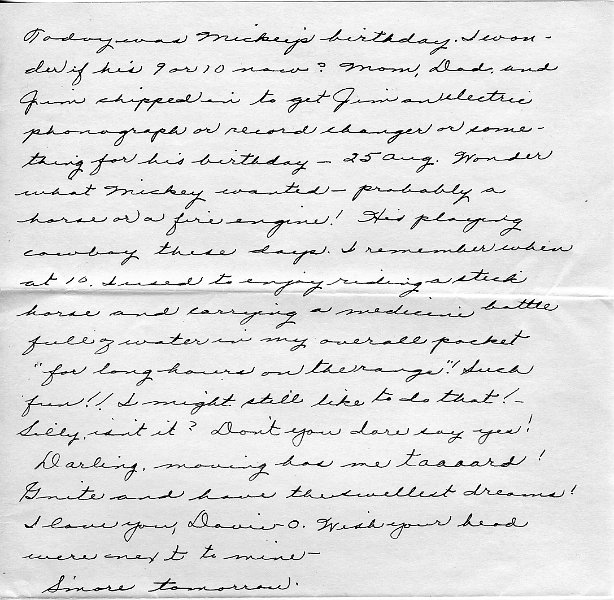 Today was Mickey's birthday. I won-
der if he's 9 or 10 now? Mom, Dad, and
Jim chipped in to get Jim an electric
phonograph or record changer or some-
thing for his birthday - 25 Aug. Wonder
what Mickey wanted - probably a
horse or a fire engine! His playing
cowboy these days. I remember when
at 10. I used to enjoy riding a stick
horse and carrying a medicine bottle
full of water in my overall pocket
"for long hours on the range"! Such
fun!! I might still like to do that! -
Silly, isn't it? Don't you dare say yes!
Darling, moving has me taaaard!
G'nite and have the swellest dreams!
I love you, Davie-O. Wish your head
were next to mine -
S'more tomorrow.